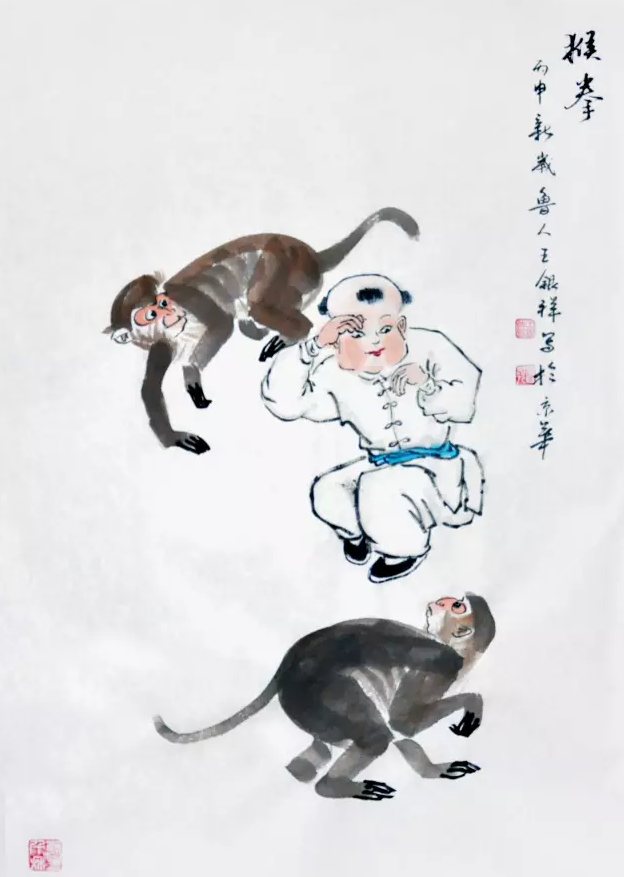 猴拳
丙申新岁鲁人王银祥写於京华